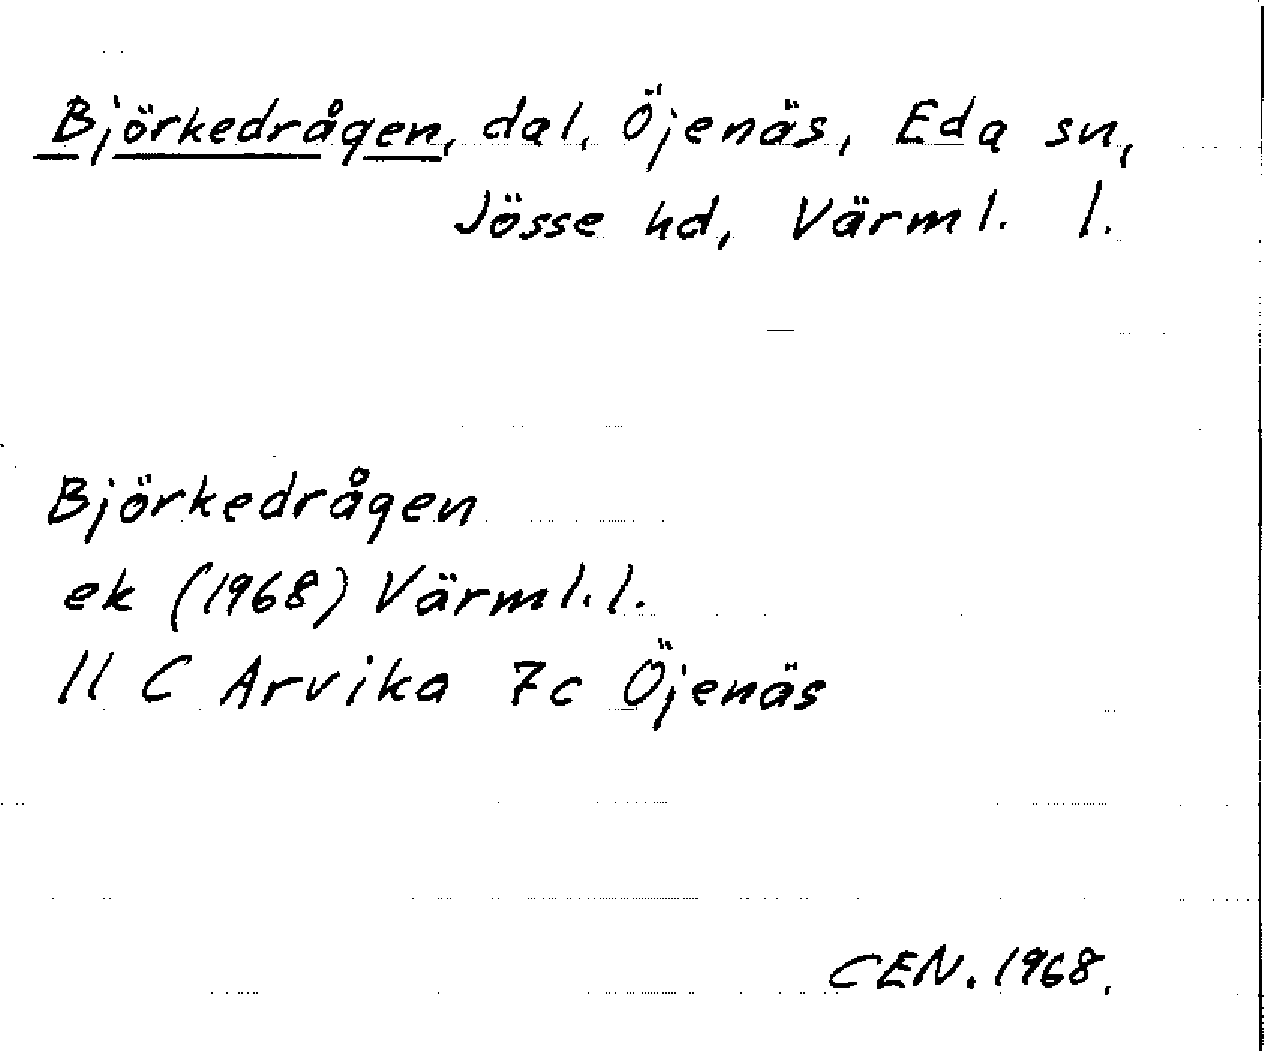 Björkedrågen, dal, Öjenäs, Eda sn,
Jösse hd, Värml. l.
Björkedrågen
ek (1968) Värml. l.
11 C Arvika 7c Öjenäs
CEN. 1968.